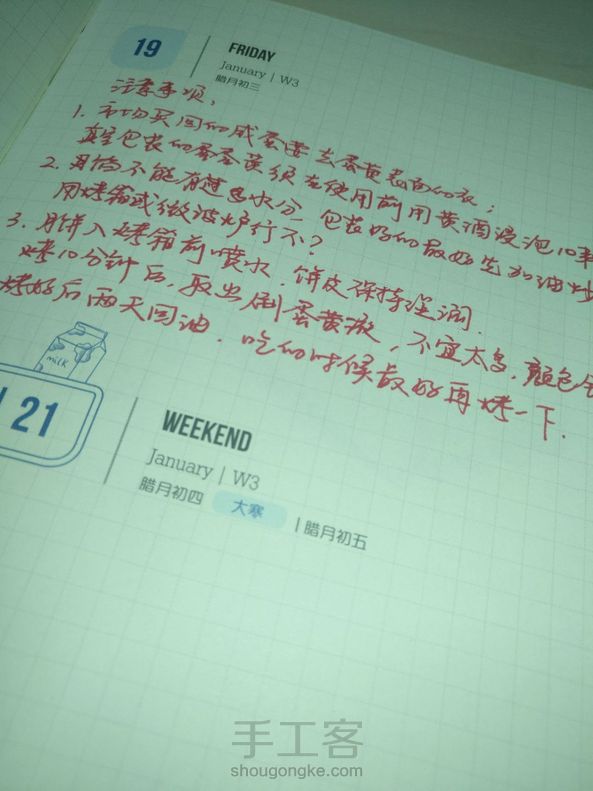 19
FRIDAY
January | W3
腊月初三
注意事项:
1. 市场买回的咸蛋要去蛋黄表面的衣;
真空包装的咸蛋黄须在使用前用黄酒浸泡10
2. 月馅不能有过多水分, 包装好的最好先加油炒
用烤箱或微波炉行不?
3. 月饼入烤箱前喷水, 饼皮保持湿润.
烤10分钟后, 取出刷蛋黄液, 不宜太多, 颜色
烤好后两天回油. 吃的时候最好再烤一下.
milk
21
WEEKEND
January | W3
腊月初四 大寒 | 腊月初五
手工客
shougongke.com